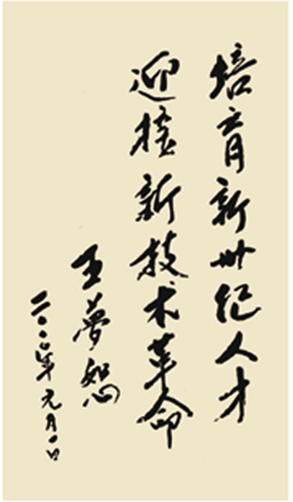 培育新世纪人才
迎接新技术革命
王梦恕
二〇〇〇年元月〇日